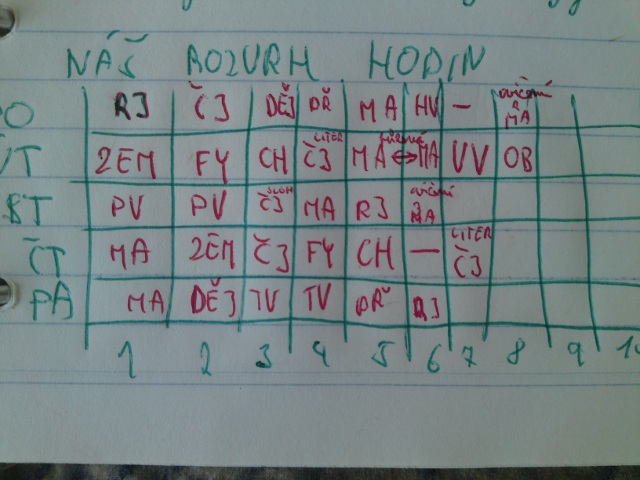 NÁŠ ROZVRH HODIN
PO RJ ČJ DĚJ PŘ MA HV - cvičení z MA
ÚT ZEM FY CH ČJ LITER MA ↔ MA VV OB
ST PV PV ČJ SLOH MA RJ cvičení
ČT MA ZEM ČJ FY CH - LITER ČJ
PÁ MA DĚJ TV TV PŘ RJ
1 2 3 4 5 6 7 8 9 10